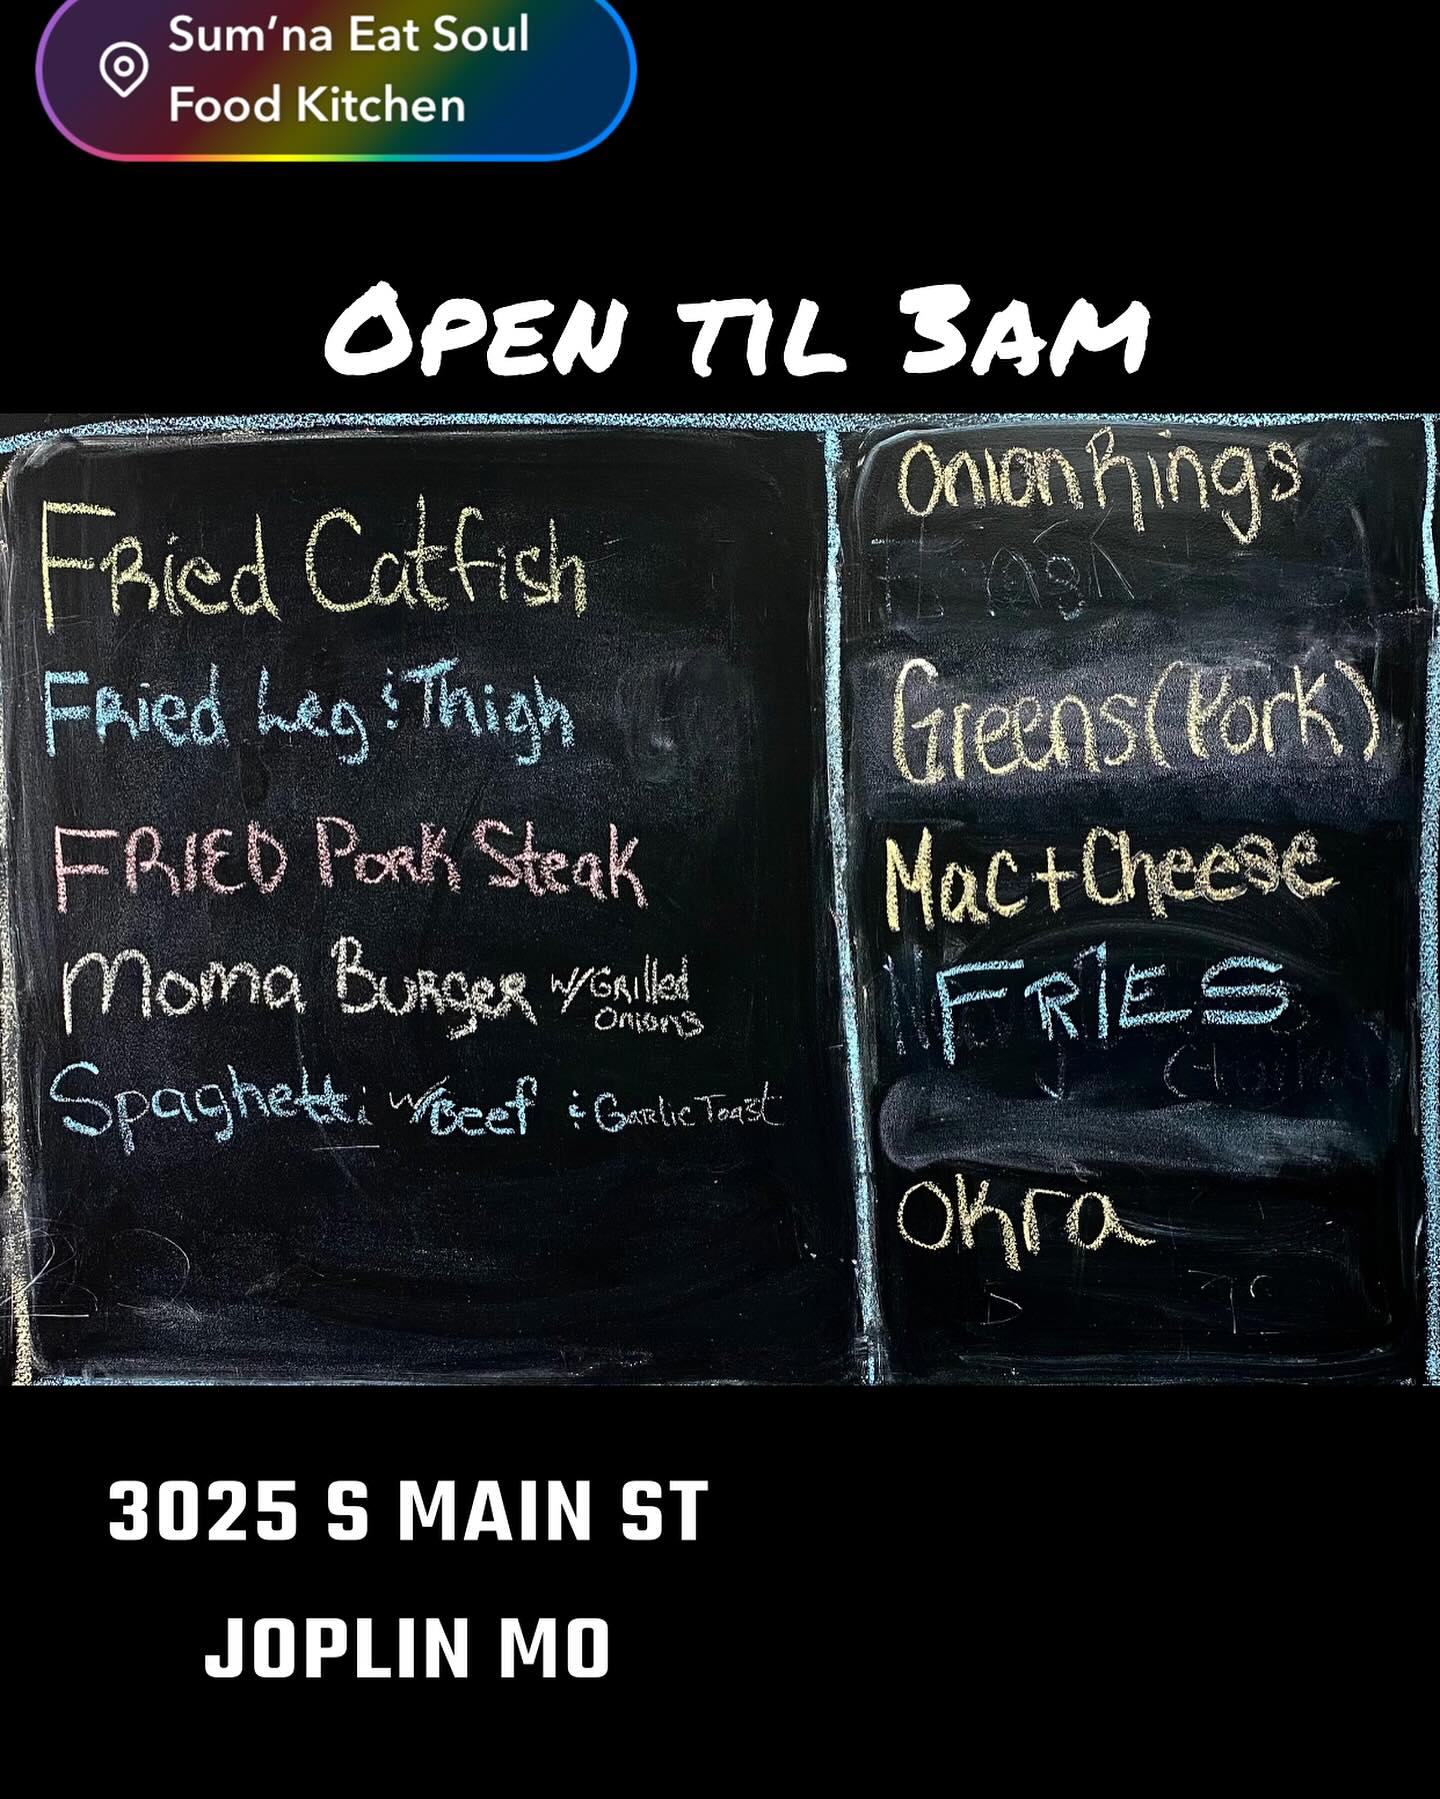 Sum’na Eat Soul
Food Kitchen
OPEN TIL 3AM
Fried Catfish
Fried Leg & Thigh
FRIED Pork Steak
Moma Burger w/Grilled
onions
Spaghetti w/Beef & Garlic Toast
Onion Rings
Greens (Pork)
Mac + Cheese
FRIES
Okra
3025 S MAIN ST
JOPLIN MO